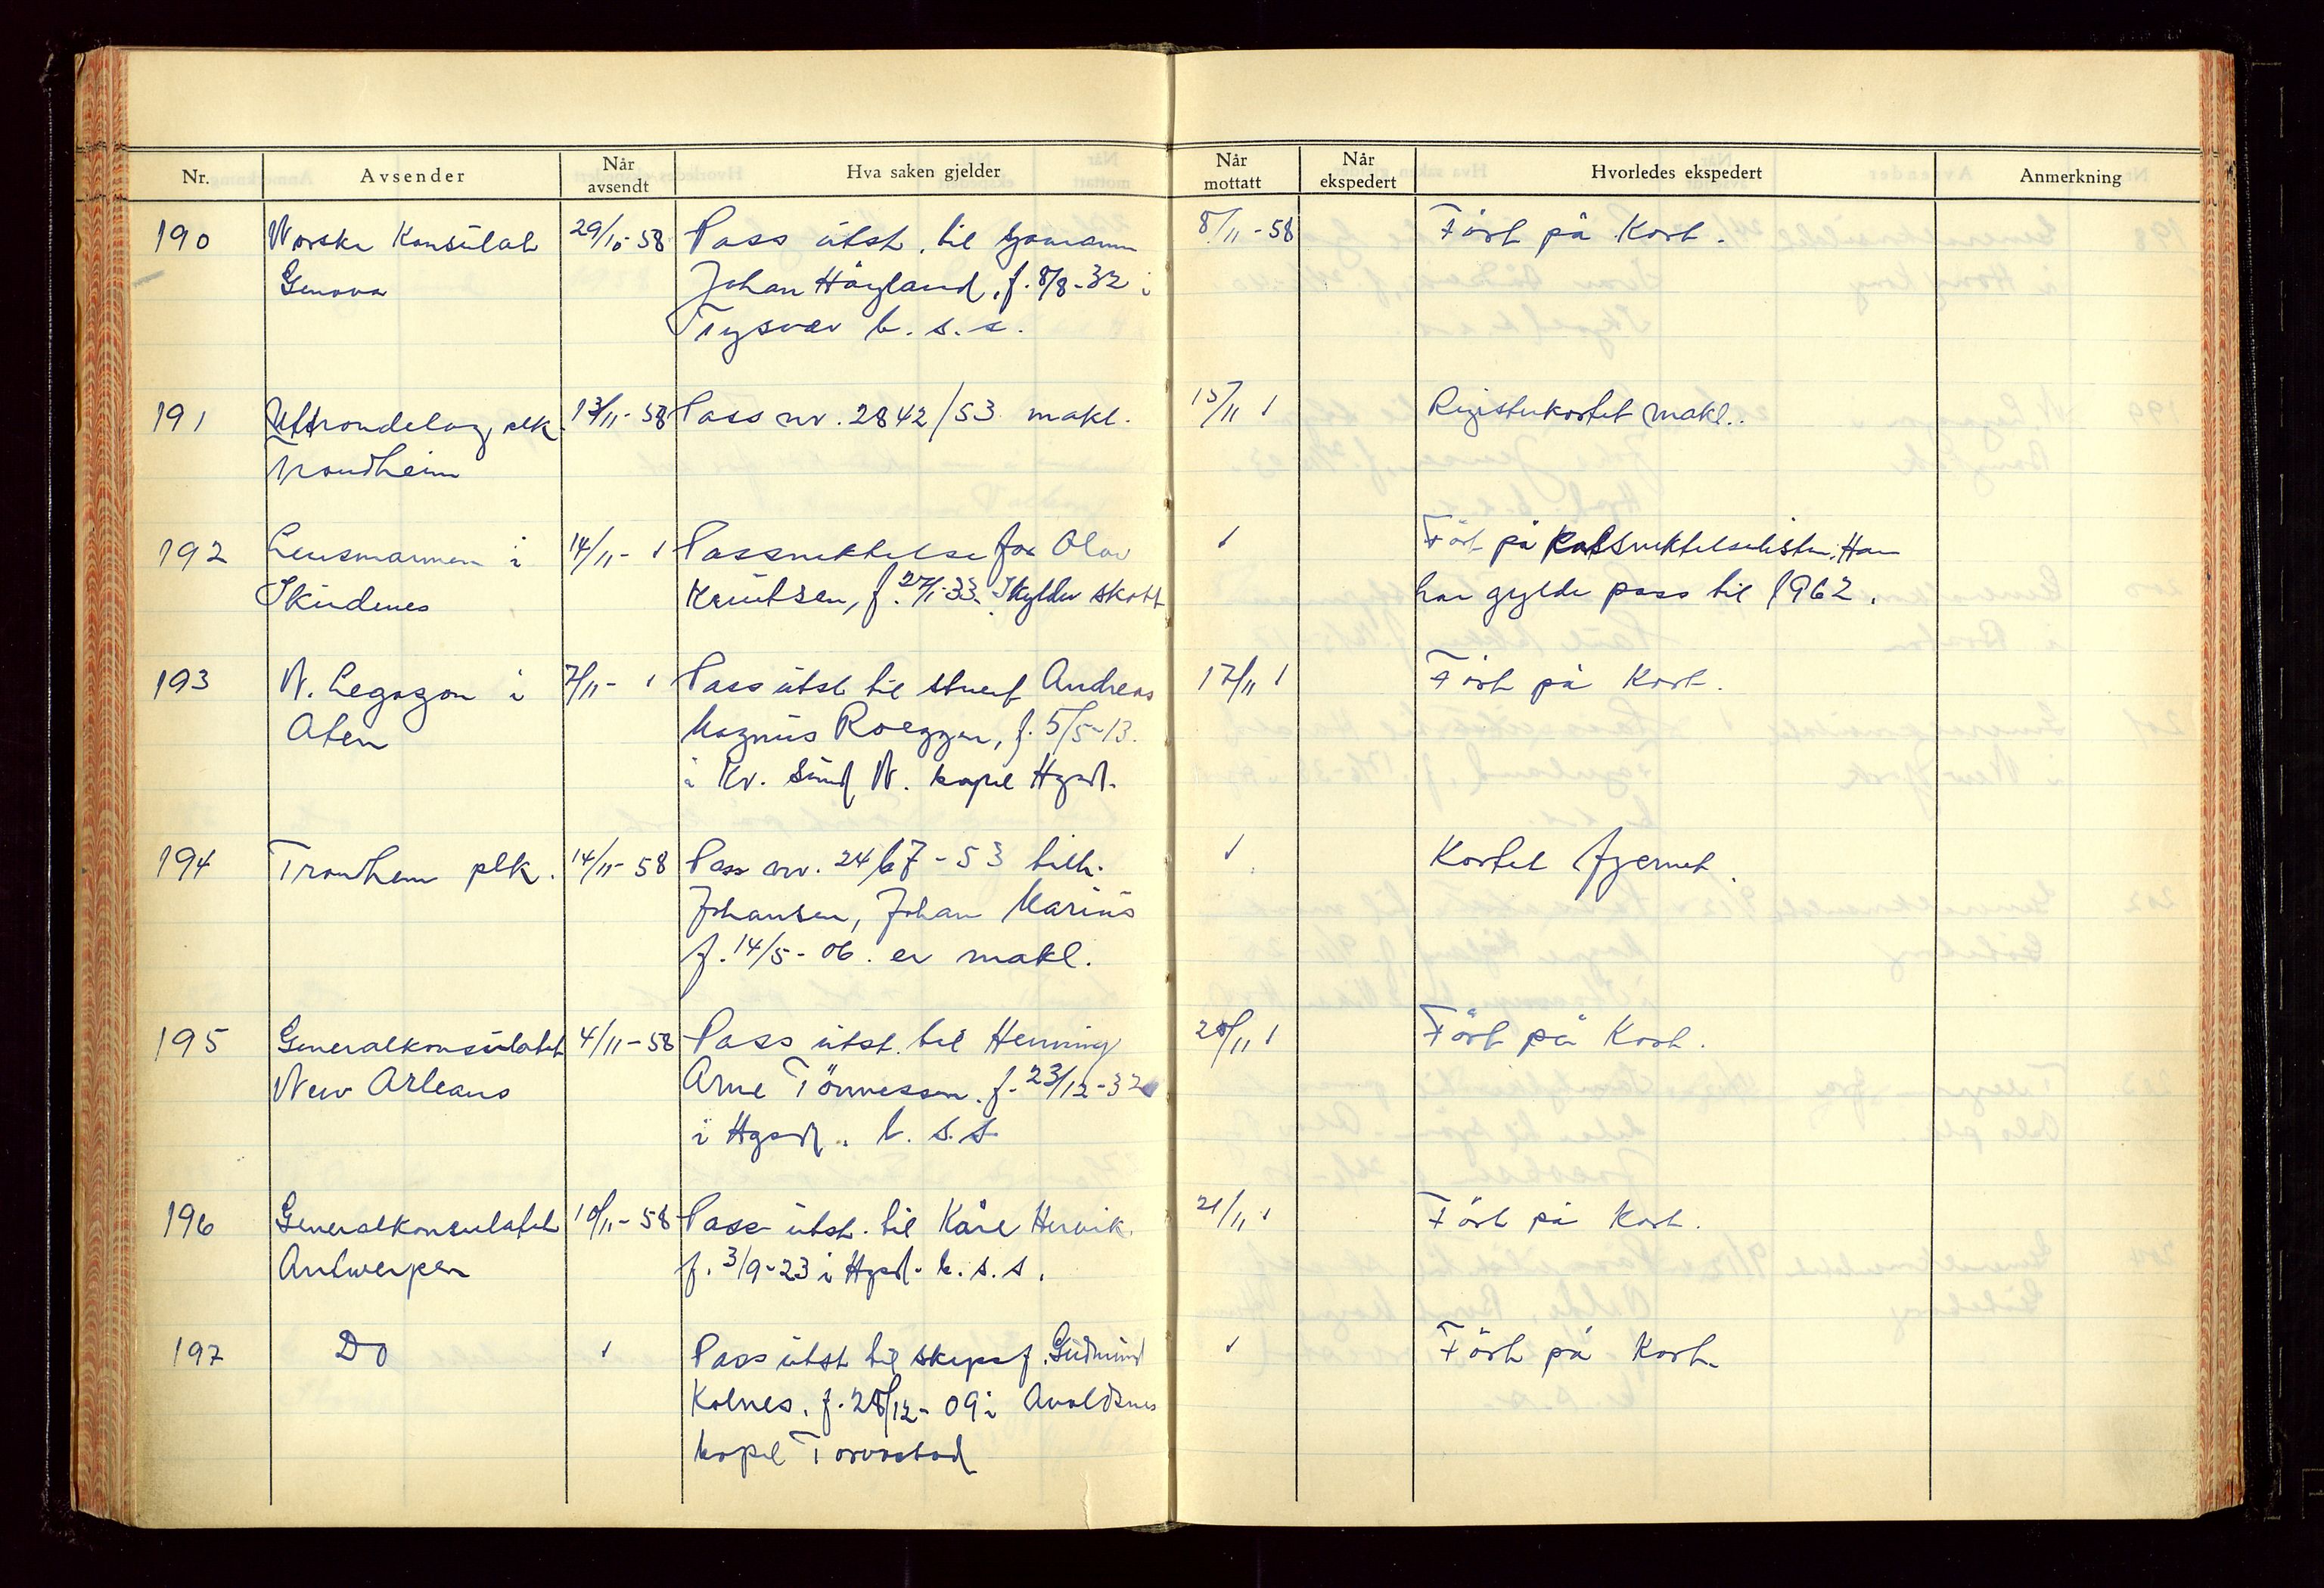 Nr. Avsender Når avsendt Hva saken gjelder Når mottatt Når ekspedert Hvorledes ekspedert Anmerkning
190 Norske Konsulat 29/10-58 Pass utst. til 8/11-58 Ført på Kort.
Genova Johan Høyland, f. 8/8-32 i
Tysvær b. s. s.
191 Uttrøndelag plk. 13/11-58 Pass nr. 2842/53 makl. 15/11 Registerkortet makl.
Trondheim
192 Lensmannen i 14/11- Passnektelse for Olav Ført på Passnektelselisten. Han
Skudenes Knutsen, f. 27/1-33. Skylder skatt har gylde pass til 1962.
193 N. Legasjon i 7/11- Pass utst til stuert Andreas 17/11 Ført på Kort.
Aten Magnus Roegger, f. 5/5-13.
i Kr. Sund N. bopel Hgsd.
194 Trondhem plk. 14/11-58 Pass nr. 2467-53 tilh. Kortet fjernet.
Johansen, Johan Marius
f. 14/5-06. er makl.
195 Generalkonsulatet 4/11-58 Pass utst. til Henning 20/11 Ført på Kort.
New Orleans Arne Tönnessen. f. 23/12-32
i Hgsd. b. s. s.
196 Generalkonsulatet 10/11-58 Pass utst. til Kåre Hervik. 21/11 Ført på Kort.
Antwerpen f. 3/9-23 i Hgsd. b. s. s.
197 Do Pass utst til skipsf. Gudmund Ført på Kort.
Kolnes. f. 28/12-09 i Avaldsnes
bopel Torvastad